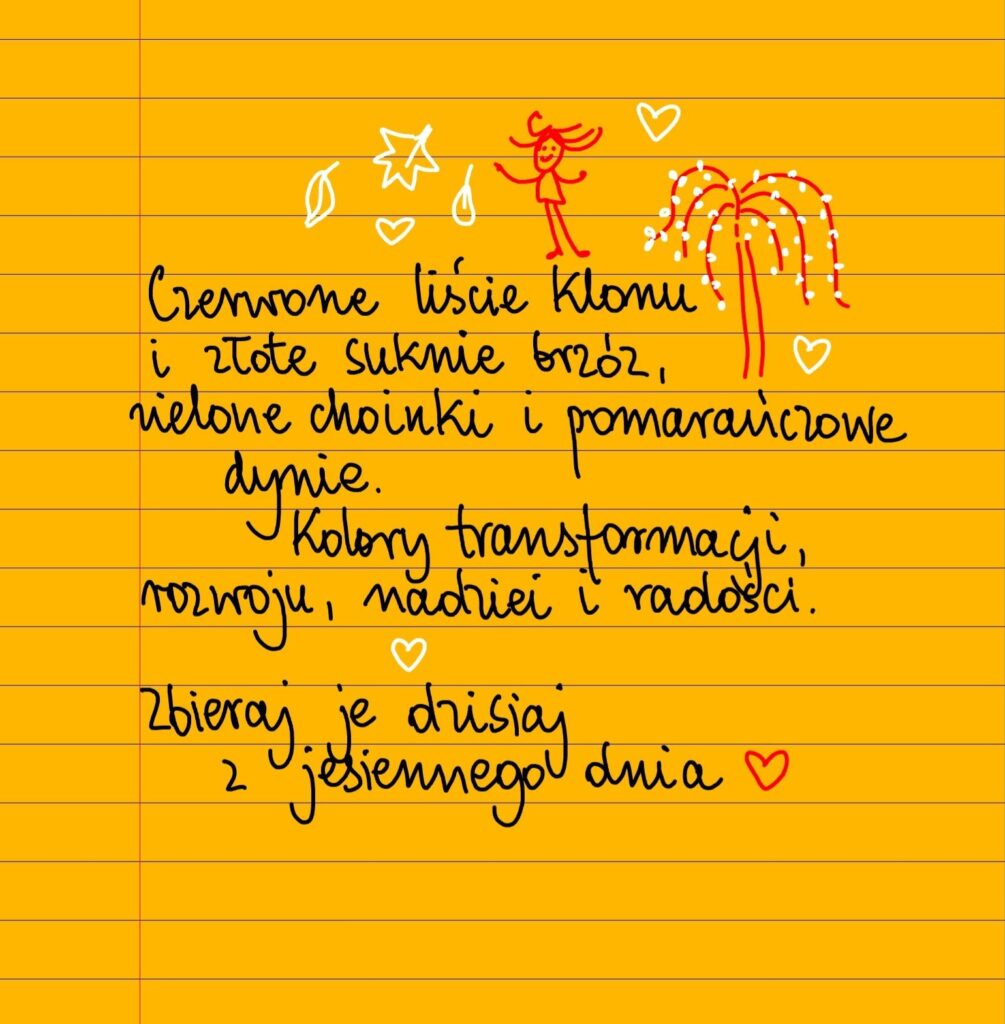 Czerwone liście klonu
i złote suknie brzóz,
zielone choinki i pomarańczowe
dynie.
Kolory transformacji,
rozwoju, nadziei i radości.
Zbieraj je dzisiaj
z jesiennego dnia